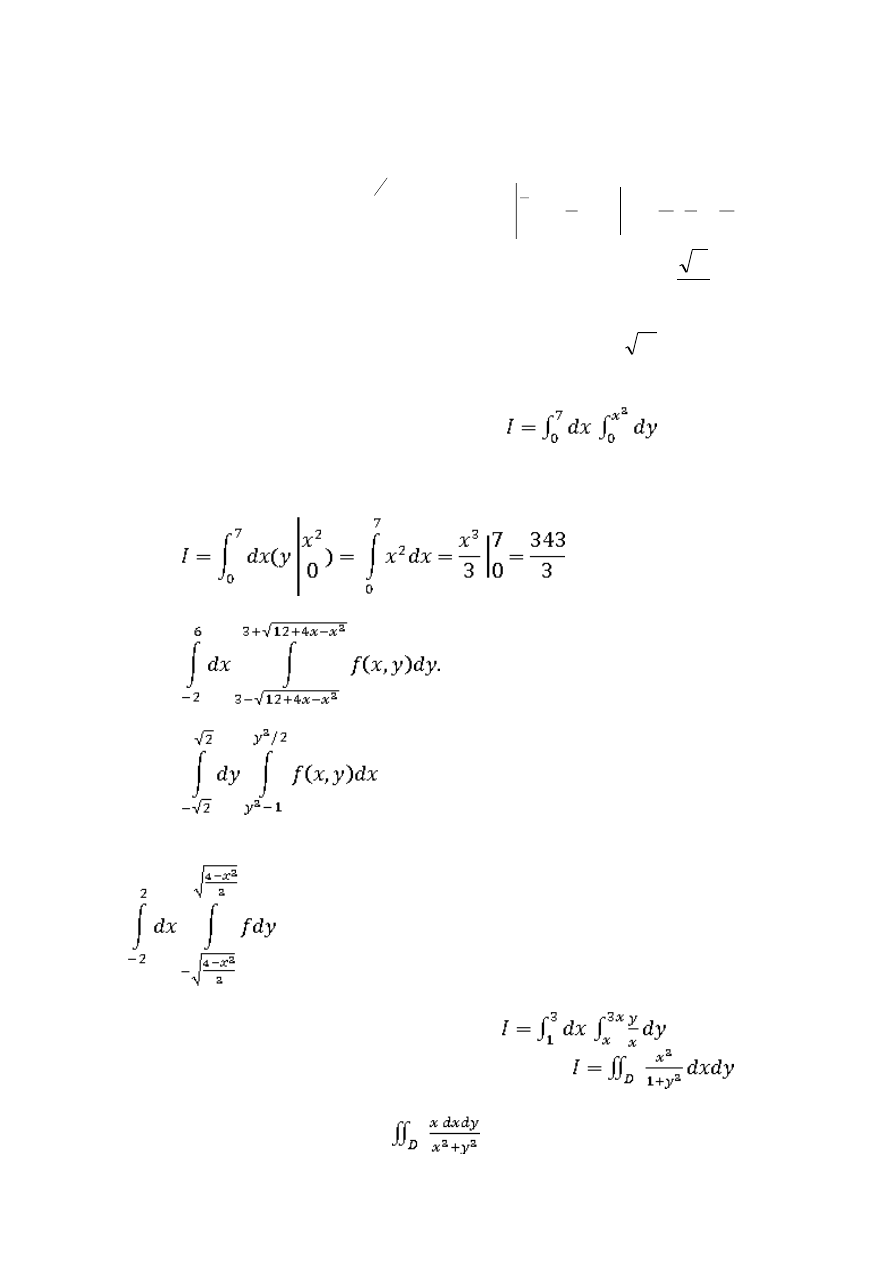 I = ∫₀⁷ dx ∫₀^{x²} dy
I = ∫₀⁷ dx(y |₀^{x²}) = ∫₀⁷ x² dx = x³/3 |₀⁷ = 343/3
∫₋₂⁶ dx ∫_{3−√(12+4x−x²)}^{3+√(12+4x−x²)} f(x, y)dy.
∫_{−√2}^{√2} dy ∫_{y²−1}^{y²/2} f(x, y)dx
∫₋₂² dx ∫_{−√((4−x²)/2)}^{√((4−x²)/2)} fdy
I = ∫₁³ dx ∫ₓ^{3x} y/x dy
I = ∬_D x²/(1+y²) dxdy
∬_D x dxdy/(x²+y²)